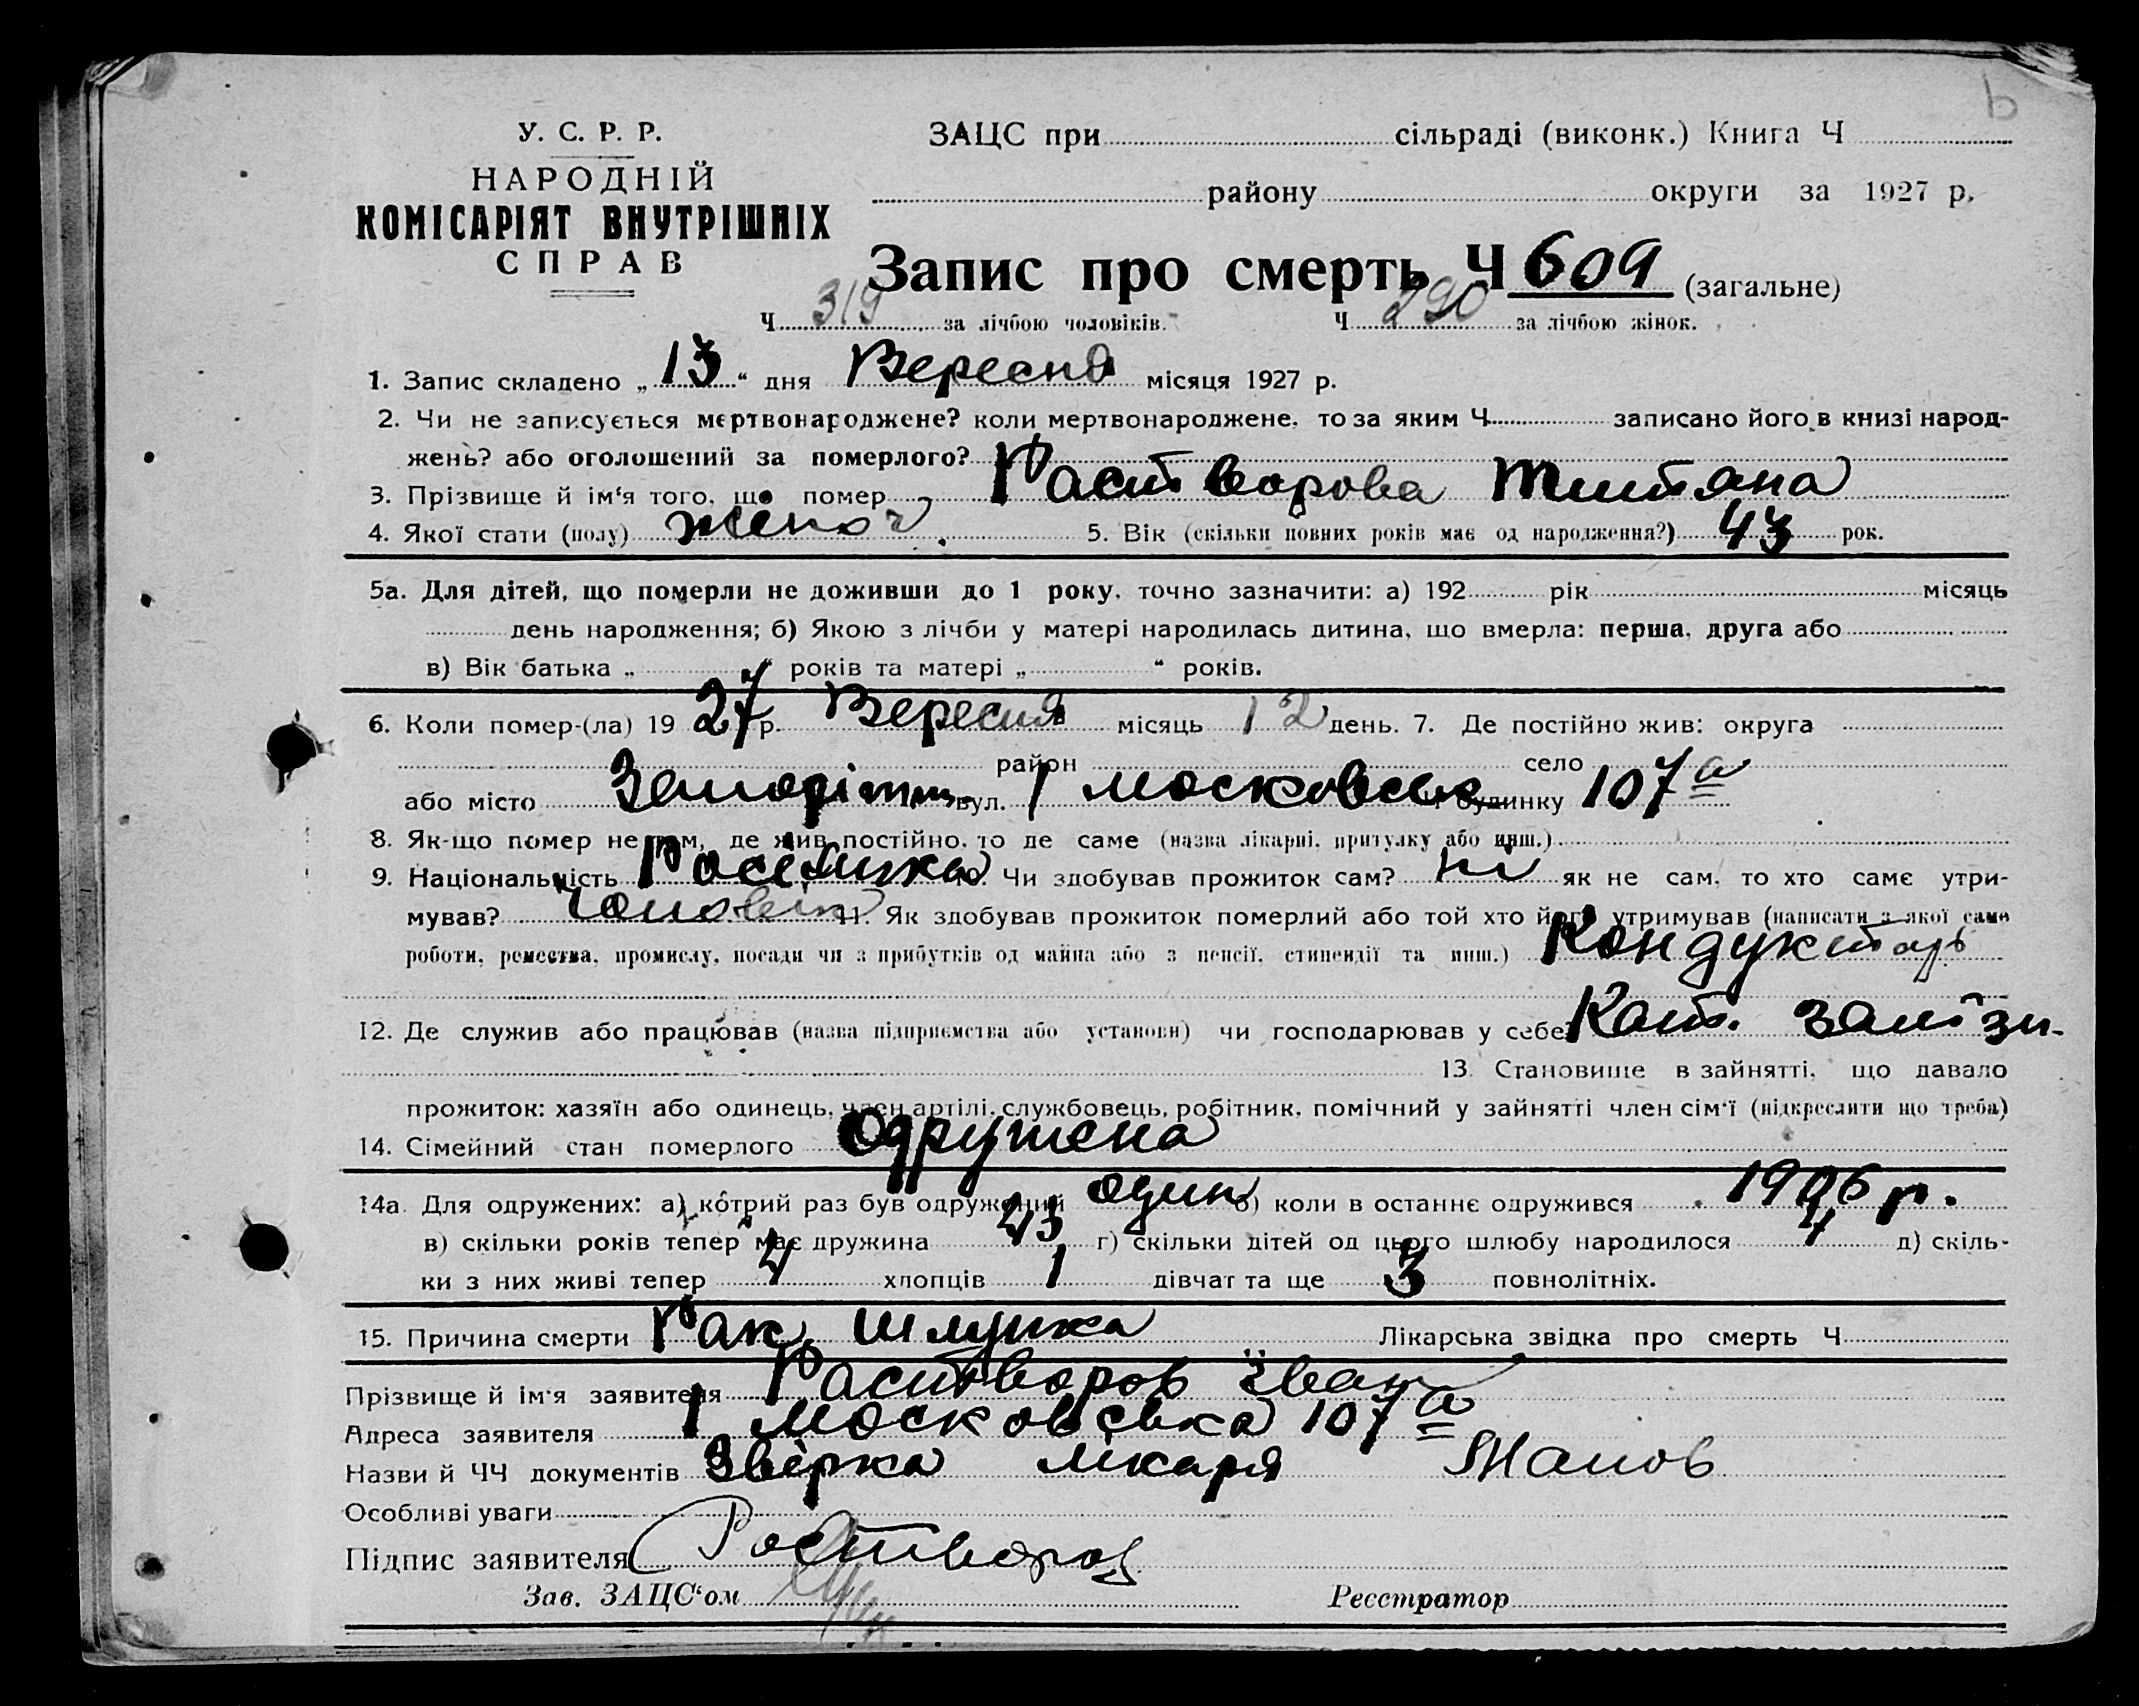 У. С. Р. Р.
НАРОДНІЙ
КОМІСАРІЯТ ВНУТРІШНІХ
СПРАВ
ЗАЦС при сільраді (виконк.) Книга Ч
району округи за 1927 р.
Запис про смерть Ч 609 (загальне)
Ч 319 за лічбою чоловіків. Ч 290 за лічбою жінок.
1. Запис складено „13“ дня Вересня місяця 1927 р.
2. Чи не записується мертвонароджене? коли мертвонароджене, то за яким Ч записано його в книзі народ-
жень? або оголошений за померлого?
3. Прізвище й ім‘я того, що помер Растворова Титяна
4. Якої стати (полу) жіноч. 5. Вік (скільки повних років має од народження?) 43 рок.
5а. Для дітей, що померли не доживши до 1 року, точно зазначити: а) 192 рік місяць
день народження; б) Якою з лічби у матері народилась дитина, що вмерла: перша, друга або
в) Вік батька „ “ років та матері „ “ років.
6. Коли помер-(ла) 1927 р. Вересня місяць 12 день. 7. Де постійно жив: округа
район село
або місто Запоріжж. вул. 1 московськ Ч будинку 107а
8. Як-що помер не там, де жив постійно, то де саме (назва лікарні, притулку або инш.)
9. Національність Росіянка 10. Чи здобував прожиток сам? ні як не сам, то хто саме утри-
мував? чоловік 11. Як здобував прожиток померлий або той хто його утримував (написати з якої саме
роботи, ремества, промислу, посади чи з прибутків од майна або з пенсії, стипендії та инш.) Кондуктарь
12. Де служив або працював (назва підприємства або установи) чи господарював у себе Кат. залізн.
13. Становище в зайнятті, що давало
прожиток: хазяїн або одинець, член артілі, службовець, робітник, помічний у зайнятті член сім‘ї (підкреслити що треба)
14. Сімейний стан померлого Одружена
14а. Для одружених: а) котрий раз був одружений один б) коли в останнє одружився 1906 р.
в) скільки років тепер має дружина 43 г) скільки дітей од цього шлюбу народилося 4 д) скіль-
ки з них живі тепер 4 хлопців 1 дівчат та ще 3 повнолітніх.
15. Причина смерти Рак шлунка Лікарська звідка про смерть Ч
Прізвище й ім‘я заявителя Растворов Іван
Адреса заявителя 1 Московська 107а
Назви й ЧЧ документів Звірка лікаря
Особливі уваги
Підпис заявителя Растворов
Зав. ЗАЦС‘ом Реєстратор